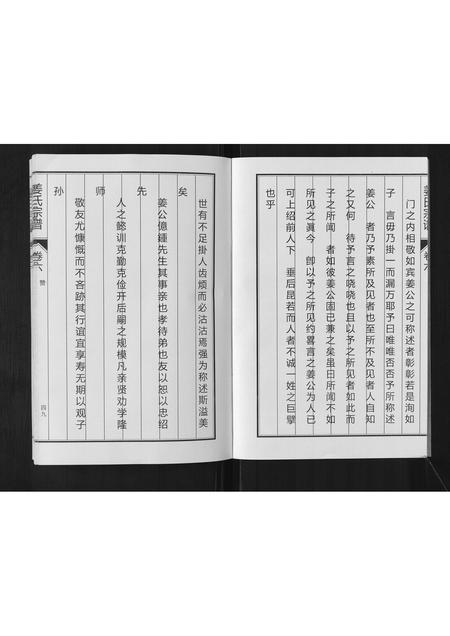 姜氏宗谱 卷六
门之内相敬如宾姜公之可称述者彰彰若是洵如
子 言毋乃掛一而漏万耶予曰唯唯否否予所称述
姜公 者乃予素所及见者也至所不及见者人自知
之又何 待予言之哓哓也且以予之所见者如此而
子之所闻 者如彼姜公固已兼之矣虽日所闻不如
所见之眞今 卽以予之所见约畧言之姜公为人已
可上绍前人下 垂后昆若而人者不诚一姓之巨擘
也乎
世有不足掛人齿烦而必沾沾焉强为称述斯溢美
矣
姜公億鍾先生其事亲也孝待弟也友以恕以忠绍
先
人之懿训克勤克俭开后嗣之规模凡亲贤劝学隆
师
敬友尤慷慨而不吝跡其行谊宜享寿无期以观子
孙
姜氏宗谱 卷六 赞 四九